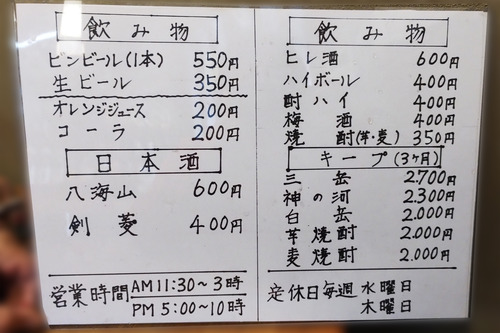 飲み物
ビンビール(1本) 550円
生ビール 350円
オレンジジュース 200円
コーラ 200円
日本酒
八海山 600円
剣菱 400円
営業時間 AM 11:30~3時
PM 5:00~10時
飲み物
ヒレ酒 600円
ハイボール 400円
酎ハイ 400円
梅酒 400円
焼酎(芋・麦) 350円
キープ(3ヶ月)
三岳 2,700円
神の河 2,300円
白岳 2,000円
芋焼酎 2,000円
麦焼酎 2,000円
定休日毎週 水曜日
木曜日